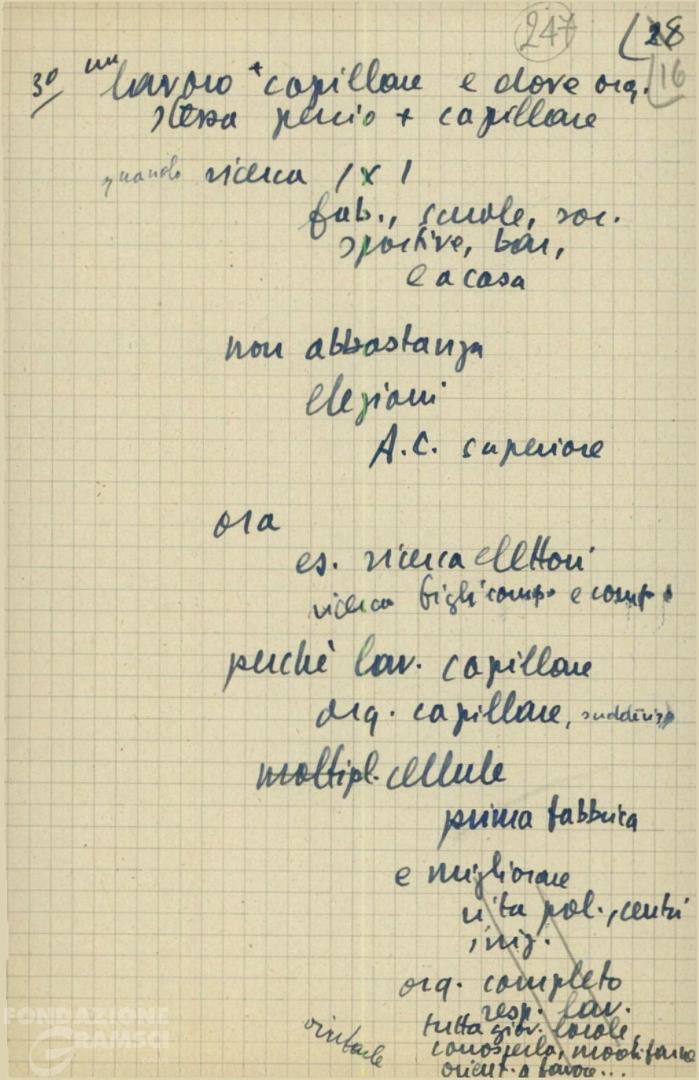 247
28
16
3º un lavoro + capillare e dove org.
stessa perciò + capillare
quando ricerca 1 x 1
fab., scuole, soc.
sportive, bar,
e a casa
non abbastanza
elezioni
A.C. superiore
ora
es. ricerca elettori
ricerca figli comp. e comp.
perchè lav. capillare
org. capillare, suddivis.
moltipl. cellule
prima fabbrica
e migliorare
vita pol., centri
iniz.
org. completo
resp. lav.
tutta giov. locale,
conoscerla, modificarne
orient. a favore...
FONDAZIONE
GRAMSCI